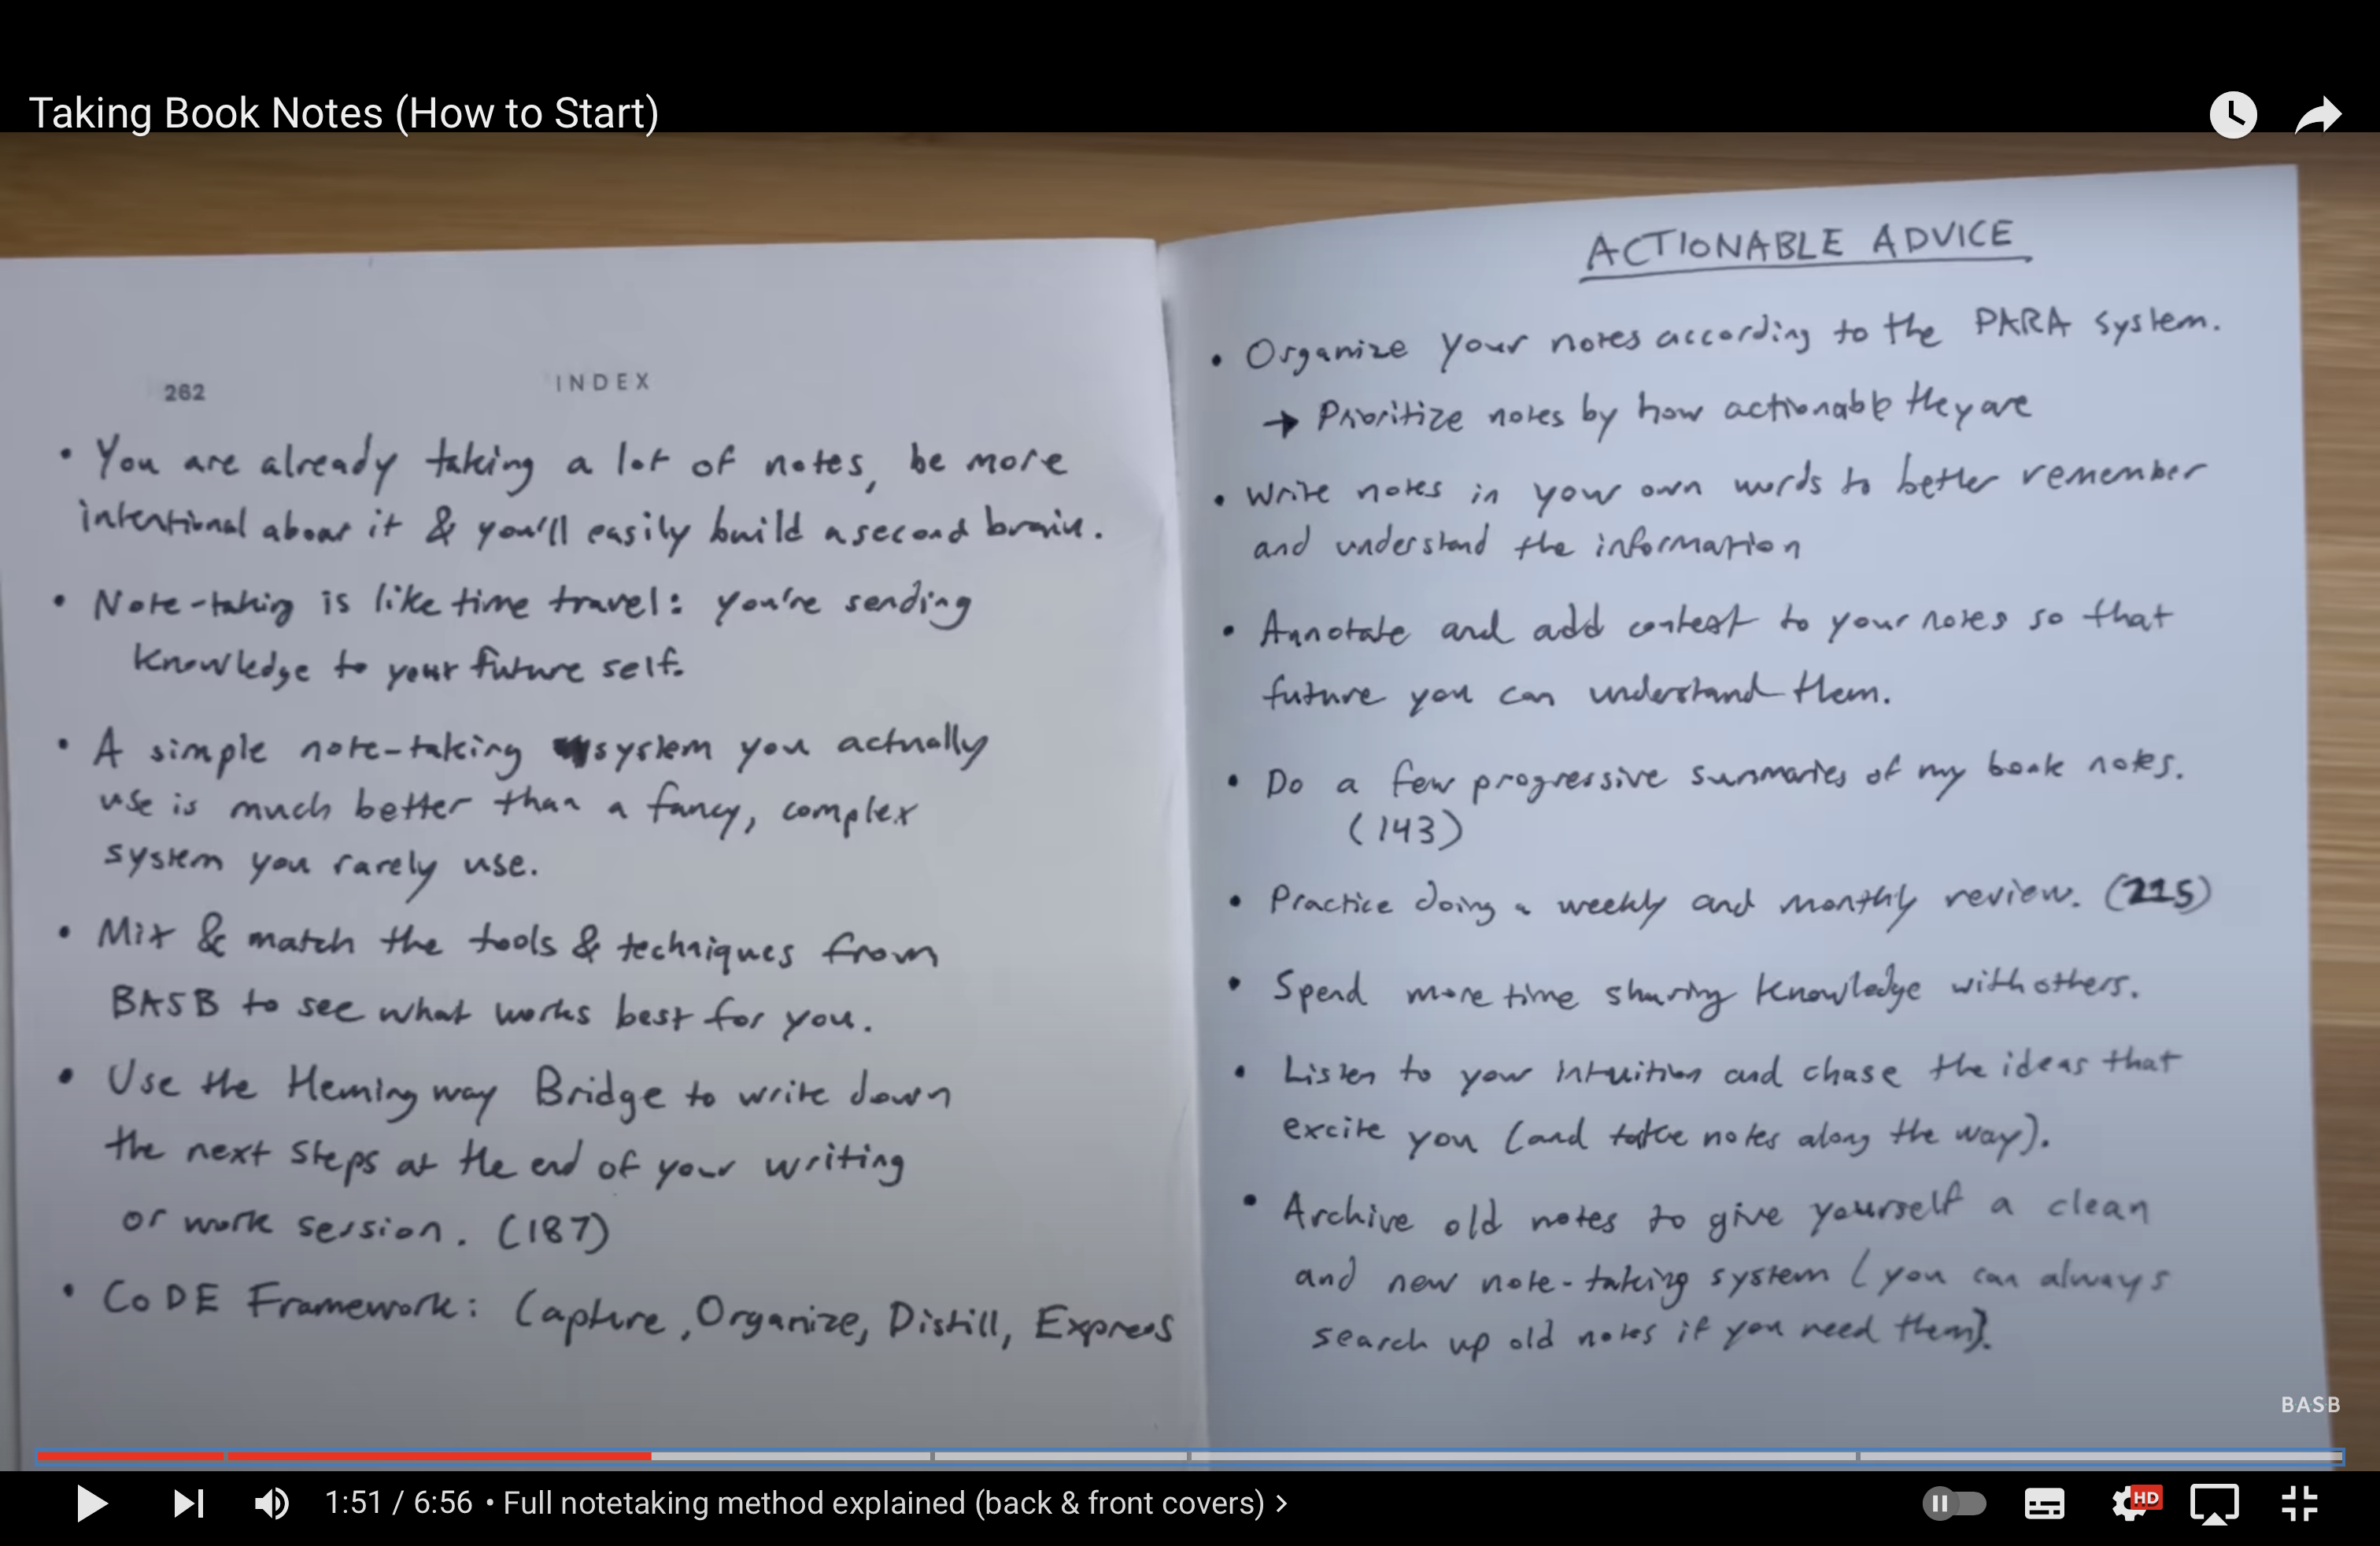 Taking Book Notes (How to Start)
262 INDEX
• You are already taking a lot of notes, be more
intentional about it & you'll easily build a second brain.
• Note-taking is like time travel: you're sending
knowledge to your future self.
• A simple note-taking system you actually
use is much better than a fancy, complex
system you rarely use.
• Mix & match the tools & techniques from
BASB to see what works best for you.
• Use the Hemingway Bridge to write down
the next steps at the end of your writing
or work session. (187)
• CODE Framework: Capture, Organize, Distill, Express
ACTIONABLE ADVICE
• Organize your notes according to the PARA system.
→ Prioritize notes by how actionable they are
• Write notes in your own words to better remember
and understand the information
• Annotate and add context to your notes so that
future you can understand them.
• Do a few progressive summaries of my book notes.
(143)
• Practice doing a weekly and monthly review. (215)
• Spend more time sharing knowledge with others.
• Listen to your intuition and chase the ideas that
excite you (and take notes along the way).
• Archive old notes to give yourself a clean
and new note-taking system (you can always
search up old notes if you need them).
BASB
1:51 / 6:56 • Full notetaking method explained (back & front covers) >
HD